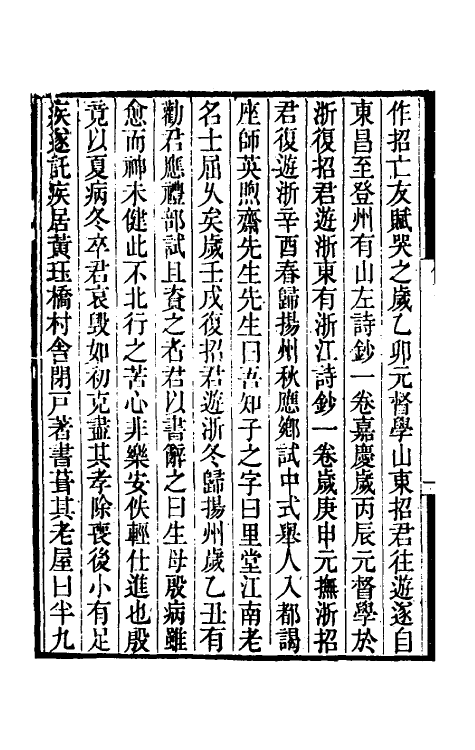 作招亡友賦哭之歲乙卯元督學山東招君往遊遂自
東昌至登州有山左詩鈔一卷嘉慶歲丙辰元督學於
浙復招君遊浙東有浙江詩鈔一卷歲庚申元撫浙招
君復遊浙辛酉春歸揚州秋應鄉試中式舉人入都謁
座師英煦齋先生先生曰吾知子之字曰里堂江南老
名士屈久矣歲壬戌復招君遊浙冬歸揚州歲乙丑有
勸君應禮部試且資之者君以書辭之曰生母殷病雖
愈而神未健此不北行之苦心非樂安佚輕仕進也殷
竟以夏病冬卒君哀毀如初克盡其孝除喪後小有足
疾遂託疾居黃珏橋村舍閉戸著書葺其老屋曰半九